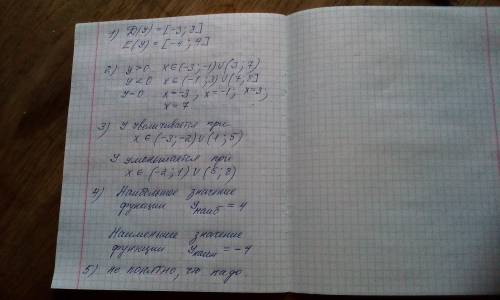 1) D(y) = [-3; 8]
E(y) = [-4; 4]
2) y>0 x∈(-3; -1)∪(3; 7)
y<0 x∈(-1; 3)∪(7; 8]
y=0 x=-3, x=-1, x=3,
x=7
3) У увеличивается при
x∈(-3; -2)∪(1; 5)
У уменьшается при
x∈(-2; 1)∪(5; 8)
4) Наибольшее значение
функции Yнаиб = 4
Наименьшее значение
функции Yнаим = -4
5) не понятно, что надо.